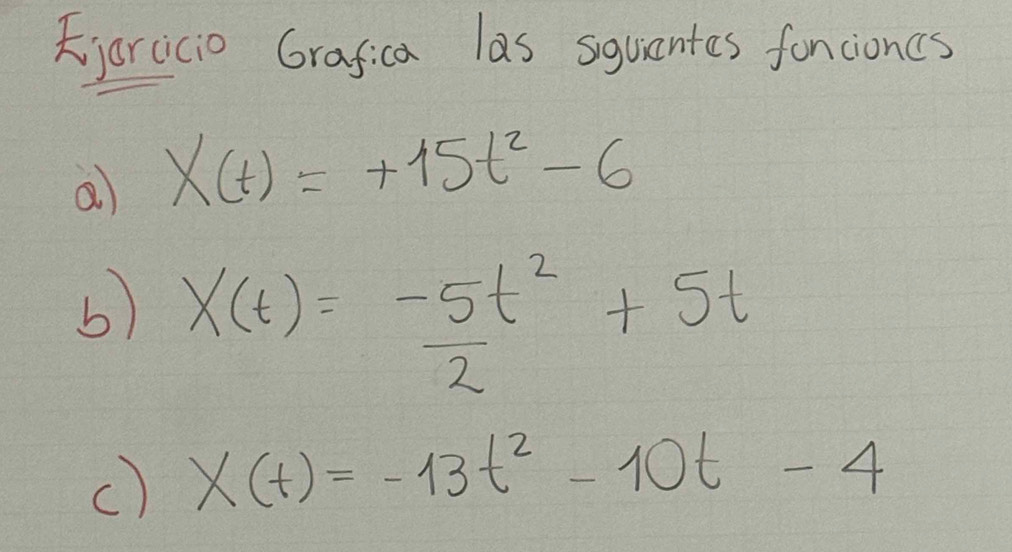 Ejercicio Grafica las siguientes funciones
a) X(t) = +15t² - 6
b) X(t) = -5/2 t² + 5t
c) X(t) = -13t² - 10t - 4